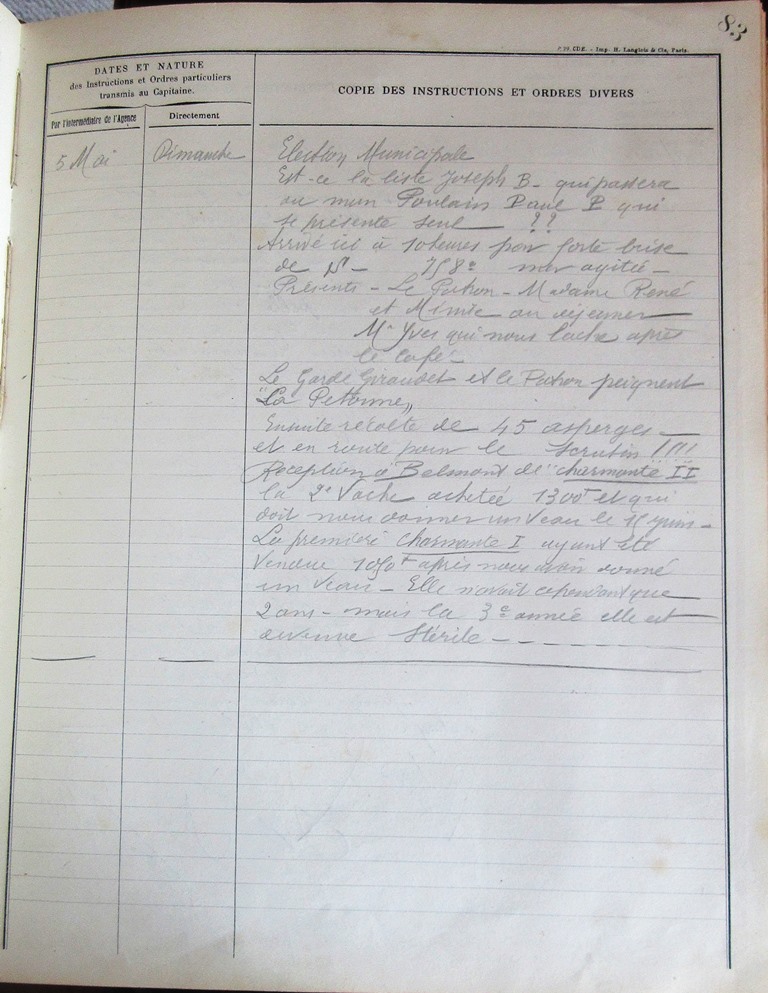 83
P. 39. CDE. - Imp. H. Langlois & Cie, Paris.
DATES ET NATURE
des Instructions et Ordres particuliers
transmis au Capitaine.
COPIE DES INSTRUCTIONS ET ORDRES DIVERS
Par l'intermédiaire de l'Agence
Directement
5 Mai Dimanche Election Municipale
Est-ce la liste Joseph B- qui passera
ou mon Poulain Paul P qui
se présente seul - ??
Arrivé ici à 10 heures par forte brise
de N - 758 e mer agitée -
Présents - Le Patron - Madame René
et Mimie au déjeuner
Mr Yves qui nous lache après
le café -
Le Garde Giraudet et le Patron peignent
"La Petonne"
Ensuite récolte de 45 asperges -
et en route pour le scrutin !!!!
Reception à Belmont de "charmante II
la 2e Vache achetée 1300f et qui
doit nous donner un Veau le 15 juin -
La première Charmante I ayant été
Vendue 1050f après nous avoir donné
un Veau - Elle n'avait cependant que
2 ans - mais la 3e année elle est
devenue Stérile - - -